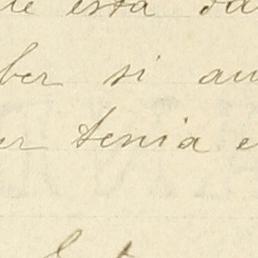 está
ber si au
er tenia e